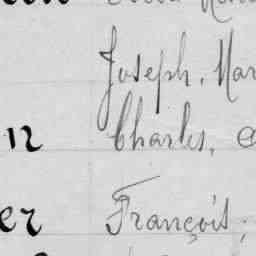 Joseph, Mar
n Charles,
er François,